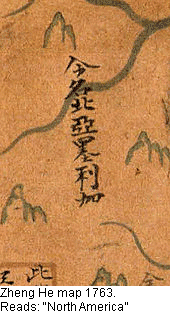 今名北亞墨利加
此
Zheng He map 1763.
Reads: "North America"